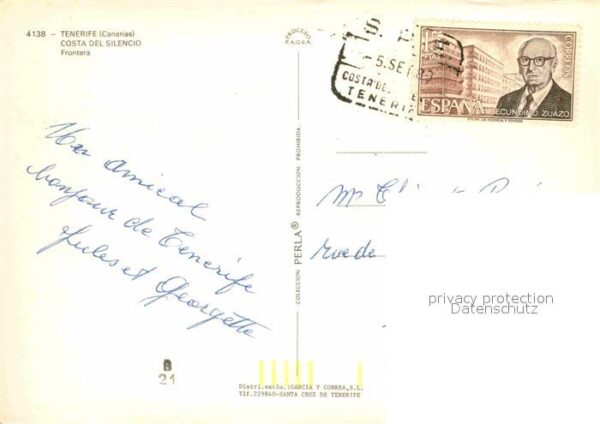 4138 - TENERIFE (Canarias)
COSTA DEL SILENCIO
Frontera
PROCERO
P.A.G.S.A.
5.SET
COSTA DEL
TENERIF
15 PTAS
CORREOS
ESPAÑA SECUNDINO ZUAZO
Un amical
bonjour de Tenerife
Jules et Georgette
COLECCION PERLA® REPRODUCCION PROHIBIDA
Mr
rue de
privacy protection
Datenschutz
B
21
Distri.exclu.:GARCIA Y CORREA,S.L.
Tlf.229840-SANTA CRUZ DE TENERIFE